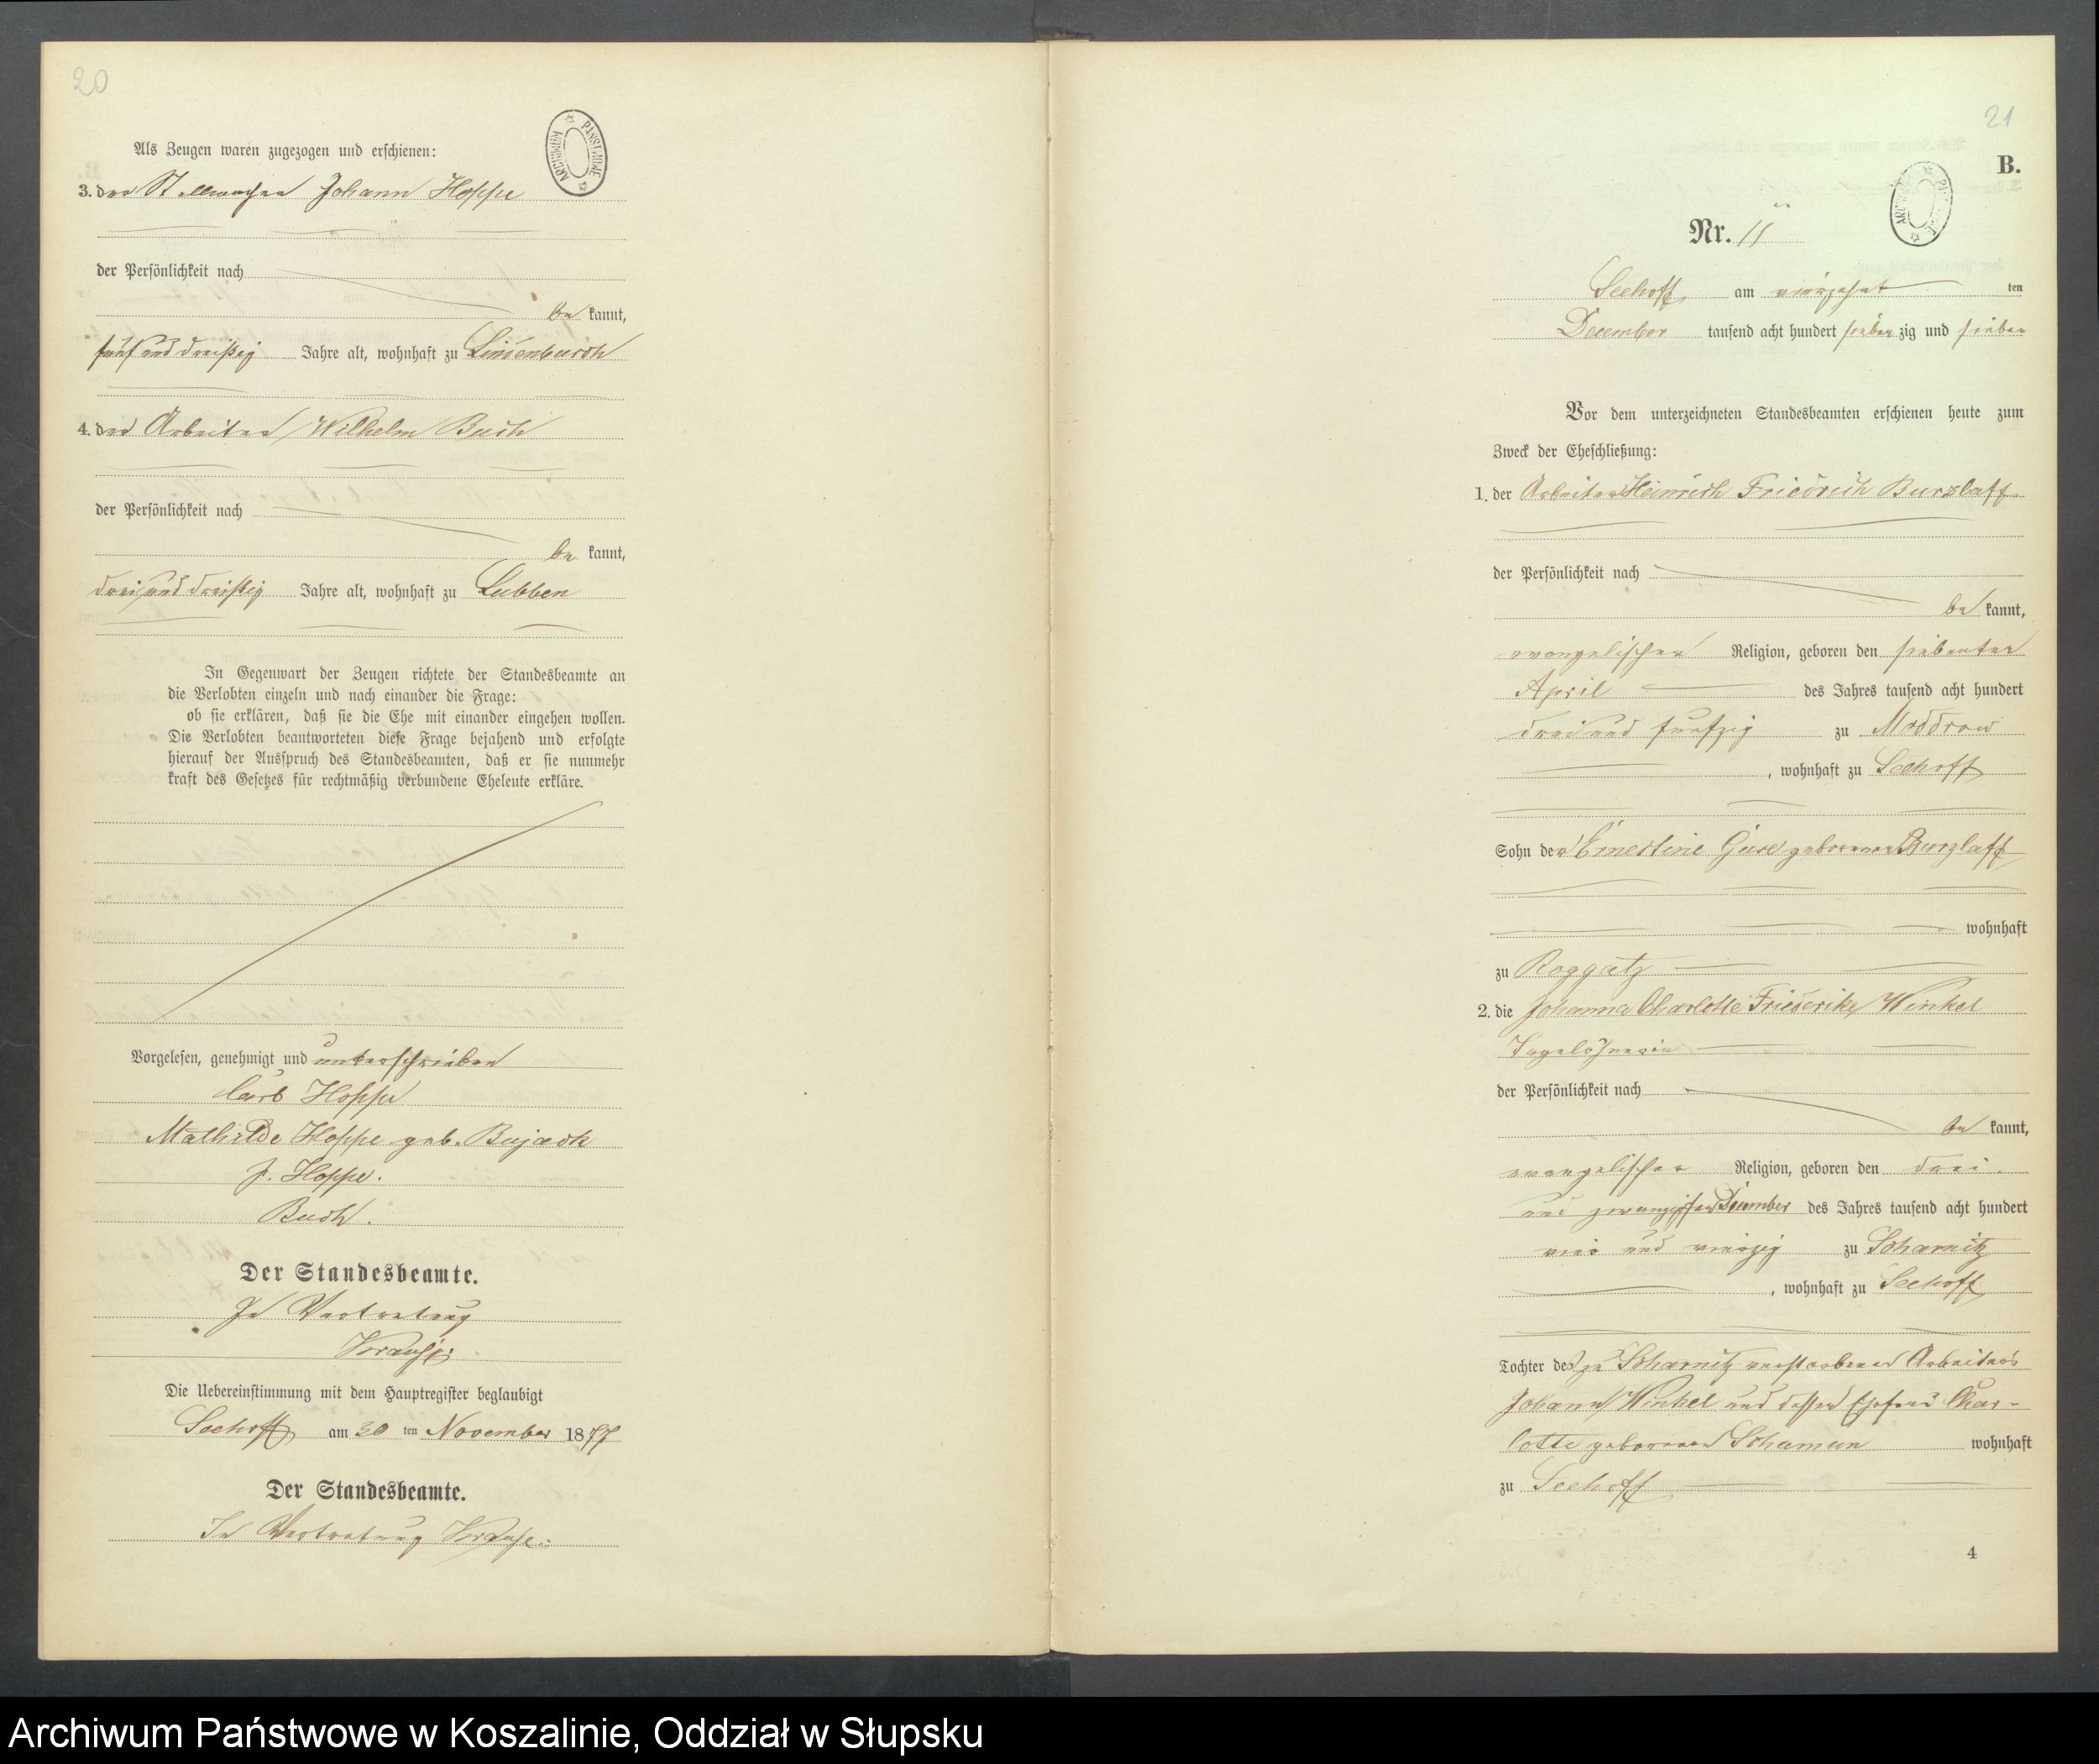 20
Als Zeugen waren zugezogen und erschienen:
3. der Stellmacher Johann Hoppe
der Persönlichkeit nach
be kannt,
fünf und dreißig Jahre alt, wohnhaft zu Lindenbusch
4. der Arbeiter Wilhelm Busch
der Persönlichkeit nach
be kannt,
drei und dreißig Jahre alt, wohnhaft zu Lubben
In Gegenwart der Zeugen richtete der Standesbeamte an
die Verlobten einzeln und nach einander die Frage:
ob sie erklären, daß sie die Ehe mit einander eingehen wollen.
Die Verlobten beantworteten diese Frage bejahend und erfolgte
hierauf der Ausspruch des Standesbeamten, daß er sie nunmehr
kraft des Gesetzes für rechtmäßig verbundene Eheleute erkläre.
Vorgelesen, genehmigt und unterschrieben
Carl Hoppe
Mathilde Hoppe geb. Bujack
J. Hoppe.
Der Standesbeamte.
In Vertretung
Die Uebereinstimmung mit dem Hauptregister beglaubigt
Seehoff am 30 ten November 1877
Der Standesbeamte.
In Vertretung
ARCHIWUM PAŃSTWOWE
21
B.
Nr. 11
Seehoff am vierzehnt ten
December tausend acht hundert sieben zig und sieben
Vor dem unterzeichneten Standesbeamten erschienen heute zum
Zweck der Eheschließung:
1. der Arbeiter Heinrich Friedrich Burzlaff
der Persönlichkeit nach
be kannt,
evangelischer Religion, geboren den siebenten
April des Jahres tausend acht hundert
drei und funfzig zu Moddrow
, wohnhaft zu Seehoff
Sohn der Ernestine Guse geborenen Burzlaff
wohnhaft
zu Roggatz
2. die Johanna Charlotte Friederike Winkel
Tagelöhnerin
der Persönlichkeit nach
be kannt,
evangelischer Religion, geboren den drei
und zwanzigsten Dezember des Jahres tausend acht hundert
vier und vierzig zu Scharnitz
, wohnhaft zu Seehoff
Tochter des zu Scharnitz verstorbenen Arbeiters
Johann Winkel und dessen Ehefrau Char-
lotte geborenen wohnhaft
zu Seehoff
4
Archiwum Państwowe w Koszalinie, Oddział w Słupsku